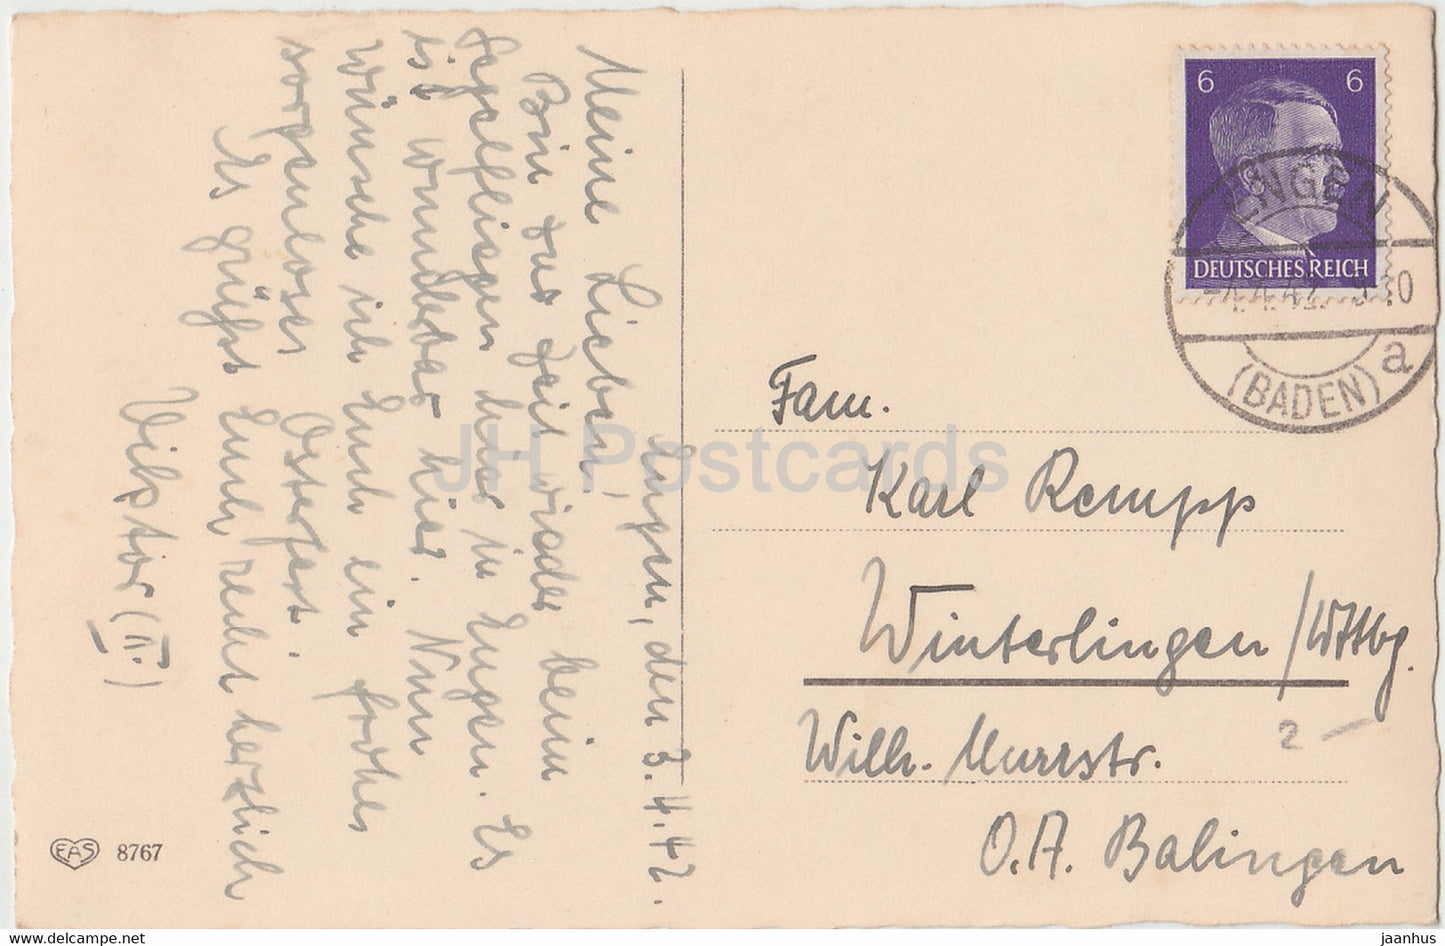 Engen, den 3.4.42.
Meine Lieben!
Bin zur Zeit wieder beim
Segelfliegen hier in Engen. Es
ist wunderbar hier. Nun
wünsche ich Euch ein frohes
sorgenloses Osterfest.
Es grüßt Euch recht herzlich
Viktor (II.)
6 6
DEUTSCHES REICH
ENGEN
-4.4.42
(BADEN) a
Fam.
Karl Rempp
Winterlingen /Wttbg.
Wilh. Murrstr.
O.A. Balingen
2 –
EAS 8767
JH Postcards
www.delcampe.net
jaanhus